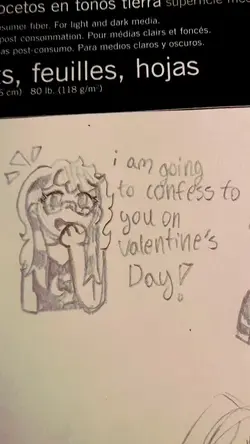 ocetos en tonos tierra
sumer fiber. For light and dark media.
post consommation. Pour médias clairs et foncés.
as post-consumo. Para medios claros y oscuros.
s, feuilles, hojas
cm) 80 lb. (118 g/m²)
i am going
to confess to
you on
valentine's
Day!